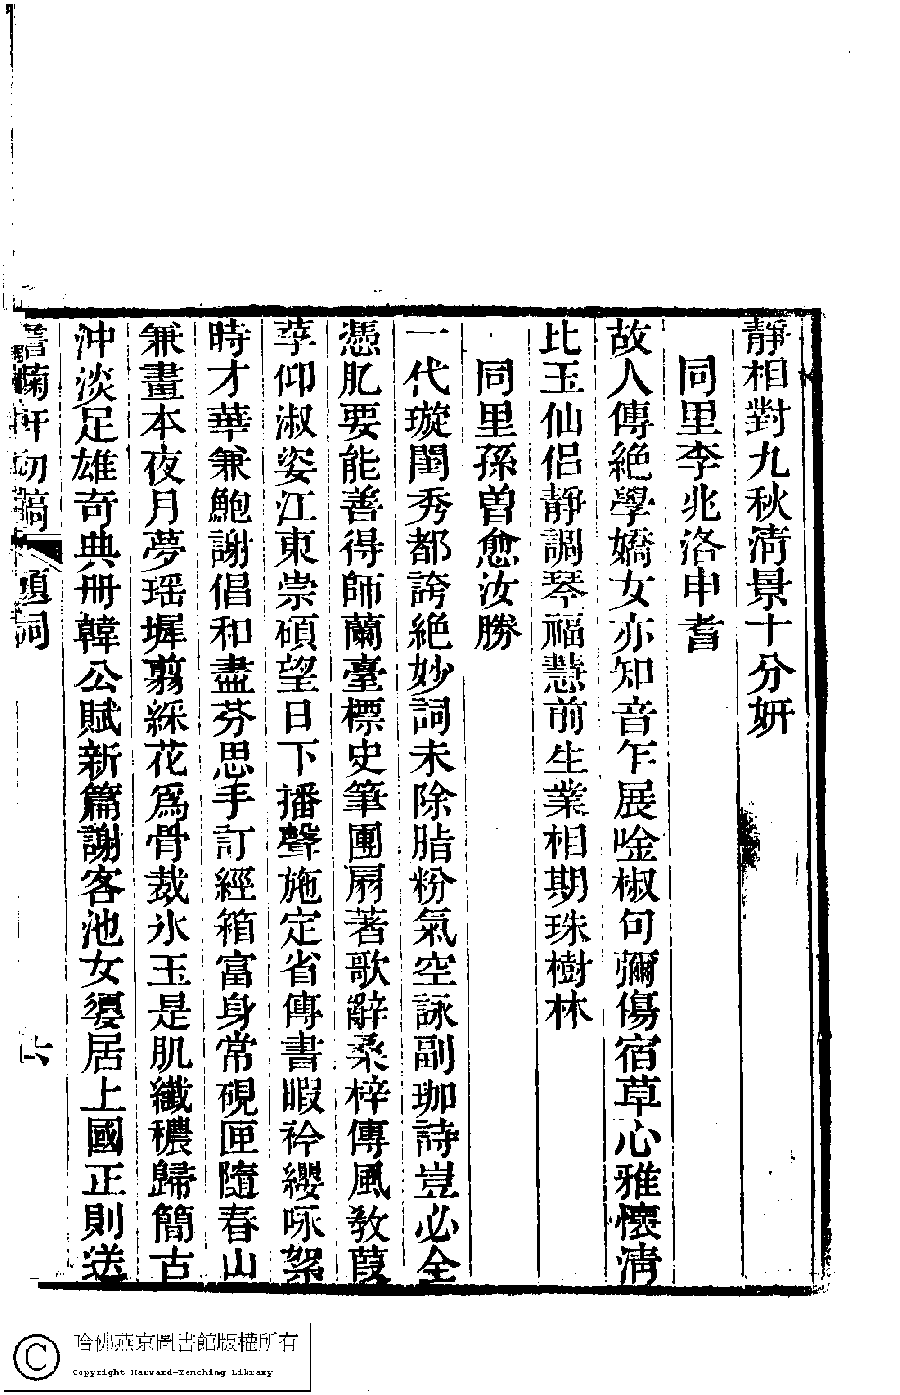 靜相對九秋淸景十分妍
同里李兆洛申耆
故人傳絶學嬌女亦知音乍展唫椒句彌傷宿草心雅懷淸
比玉仙侶靜調琴福慧前生業相期珠樹林
同里孫曽愈汝勝
一代璇閨秀都誇絶妙詞未除脂粉氣空詠副珈詩豈必全
憑肊要能善得師蘭臺標史筆團扇著歌辭桑梓傳風敎葭
莩仰淑姿江東崇碩望日下播聲施定省傳書暇衿纓咏絮
時才華兼鮑謝倡和盡芬思手訂經箱富身常硯匣隨春山
兼畫本夜月夢瑶墀翦綵花爲骨裁氷玉是肌纖穠歸簡古
沖淡足雄奇典册韓公賦新篇謝客池女嬃居上國正則送
菊軒初稿 題詞 六
哈佛燕京圖書館版權所有
Copyright Harvard-Yenching Library